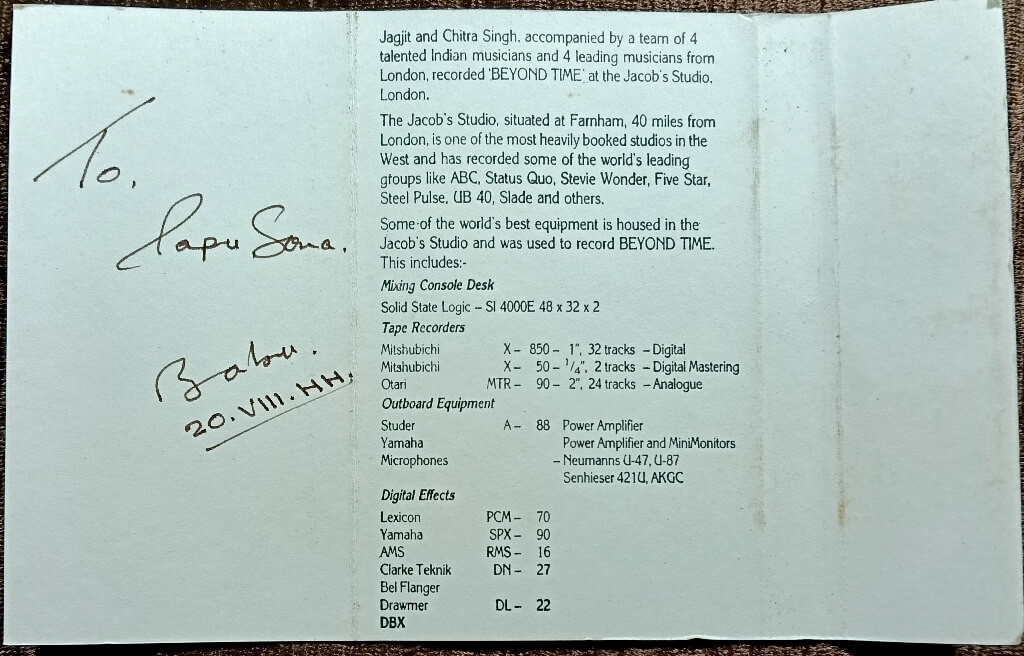 To,
Papu Sona.
Babu.
20.VIII.HH.
Jagjit and Chitra Singh, accompanied by a team of 4
talented Indian musicians and 4 leading musicians from
London, recorded 'BEYOND TIME' at the Jacob's Studio,
London.
The Jacob's Studio, situated at Farnham, 40 miles from
London, is one of the most heavily booked studios in the
West and has recorded some of the world's leading
groups like ABC, Status Quo, Stevie Wonder, Five Star,
Steel Pulse, UB 40, Slade and others.
Some of the world's best equipment is housed in the
Jacob's Studio and was used to record BEYOND TIME.
This includes:-
Mixing Console Desk
Solid State Logic – Sl 4000E 48 x 32 x 2
Tape Recorders
Mitshubichi X – 850 – 1", 32 tracks – Digital
Mitshubichi X – 50 – 1/4", 2 tracks – Digital Mastering
Otari MTR – 90 – 2", 24 tracks – Analogue
Outboard Equipment
Studer A – 88 Power Amplifier
Yamaha Power Amplifier and MiniMonitors
Microphones – Neumanns U-47, U-87
Senhieser 421U, AKGC
Digital Effects
Lexicon PCM – 70
Yamaha SPX – 90
AMS RMS – 16
Clarke Teknik DN – 27
Bel Flanger
Drawmer DL – 22
DBX